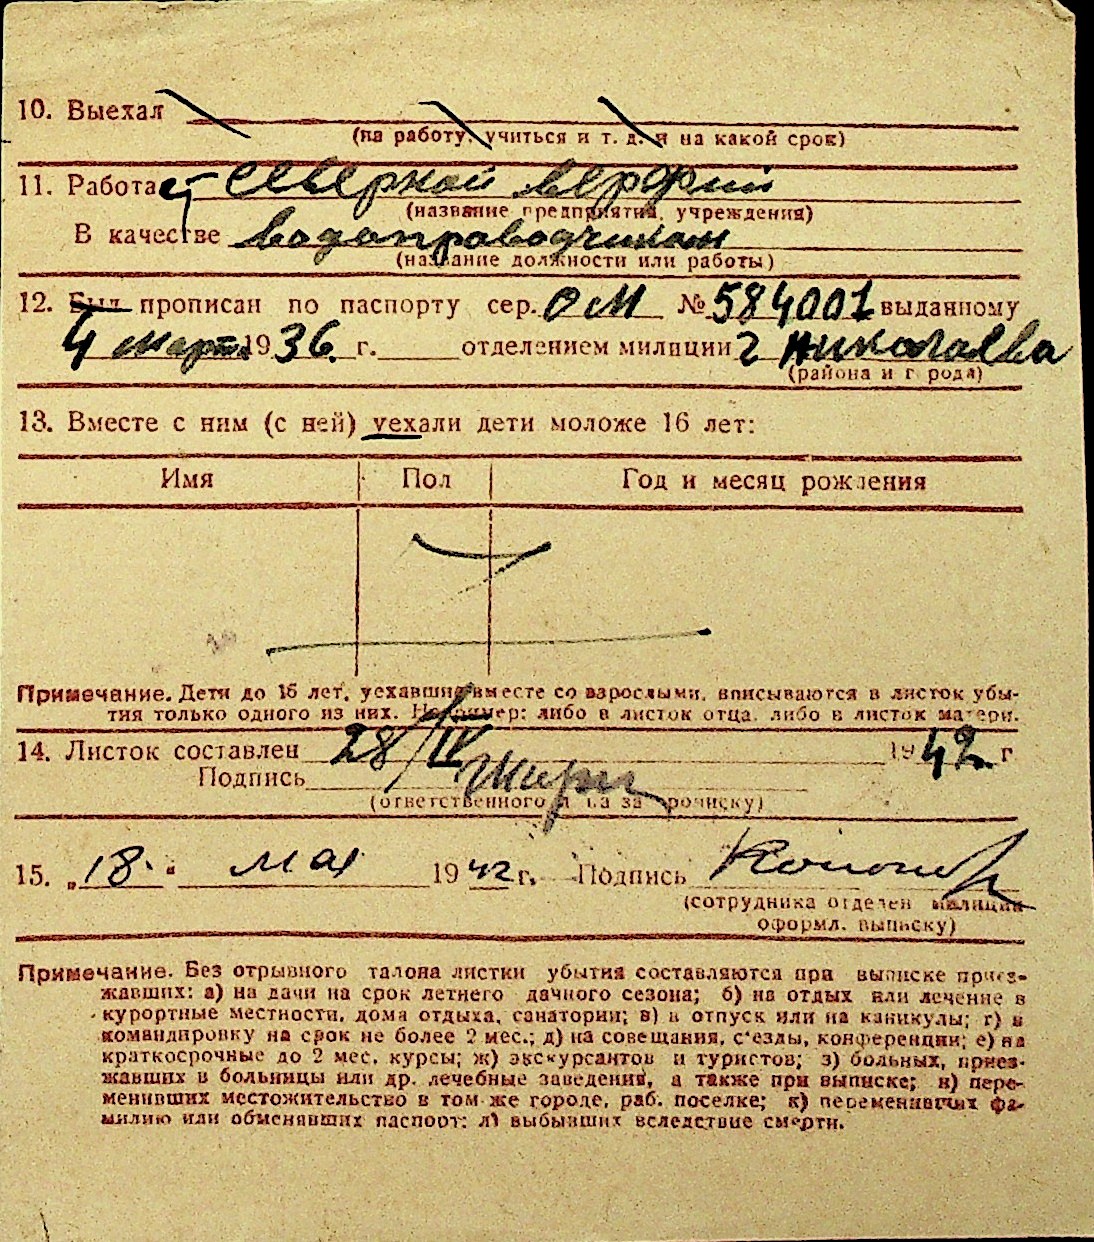 10. Выехал
(на работу, учиться и т. д. и на какой срок)
11. Работает Северной верфии
(название предприятия, учреждения)
В качестве водопроводчиком
(название должности или работы)
12. Был прописан по паспорту сер. ОМ № 584001 выданному
4 марта 1936 г. отделением милиции г Николаева
(района и города)
13. Вместе с ним (с ней) уехали дети моложе 16 лет:
Имя Пол Год и месяц рождения
Примечание. Дети до 16 лет, уехавшие вместе со взрослыми, вписываются в листок убы-
тия только одного из них. Например: либо в листок отца, либо в листок матери.
14. Листок составлен 28/IV 1942 г
Подпись
(ответственного лица за прописку)
15. „18.“ мая 1942 г. Подпись
(сотрудника отделен милиции
оформл. выписку)
Примечание. Без отрывного талона листки убытия составляются при выписке приез-
жавших: а) на дачи на срок летнего дачного сезона; б) на отдых или лечение в
курортные местности, дома отдыха, санатории; в) в отпуск или на каникулы; г) в
командировку на срок не более 2 мес.; д) на совещания, с'езды, конференции; е) на
краткосрочные до 2 мес. курсы; ж) экскурсантов и туристов; з) больных, приез-
жавших в больницы или др. лечебные заведения, а также при выписке; и) пере-
менивших местожительство в том же городе, раб. поселке; к) переменивших фа-
милию или обменявших паспорт; л) выбывших вследствие смерти.